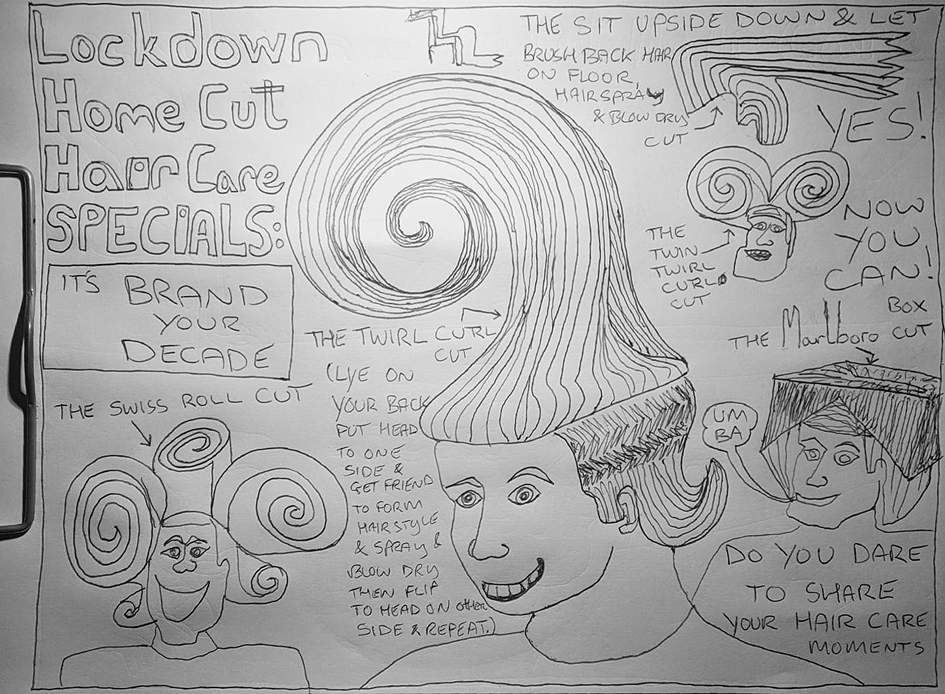 Lockdown
Home Cut
Hair Care
SPECIALS:
IT'S BRAND
YOUR
DECADE
THE SIT UPSIDE DOWN & LET
BRUSH BACK HAIR
ON FLOOR,
HAIRSPRAY
& BLOW DRY
CUT
YES!
NOW
YOU
CAN!
THE
TWIN
TWIRL
CURL
CUT
THE TWIRL CURL
CUT
(LYE ON
YOUR BACK
PUT HEAD
TO ONE
SIDE &
GET FRIEND
TO FORM
HAIRSTYLE
& SPRAY &
BLOW DRY
THEN FLIP
TO HEAD ON other
SIDE & REPEAT.)
THE SWISS ROLL CUT
THE Marlboro BOX CUT
UM
BA
DO YOU DARE
TO SHARE
YOUR HAIR CARE
MOMENTS